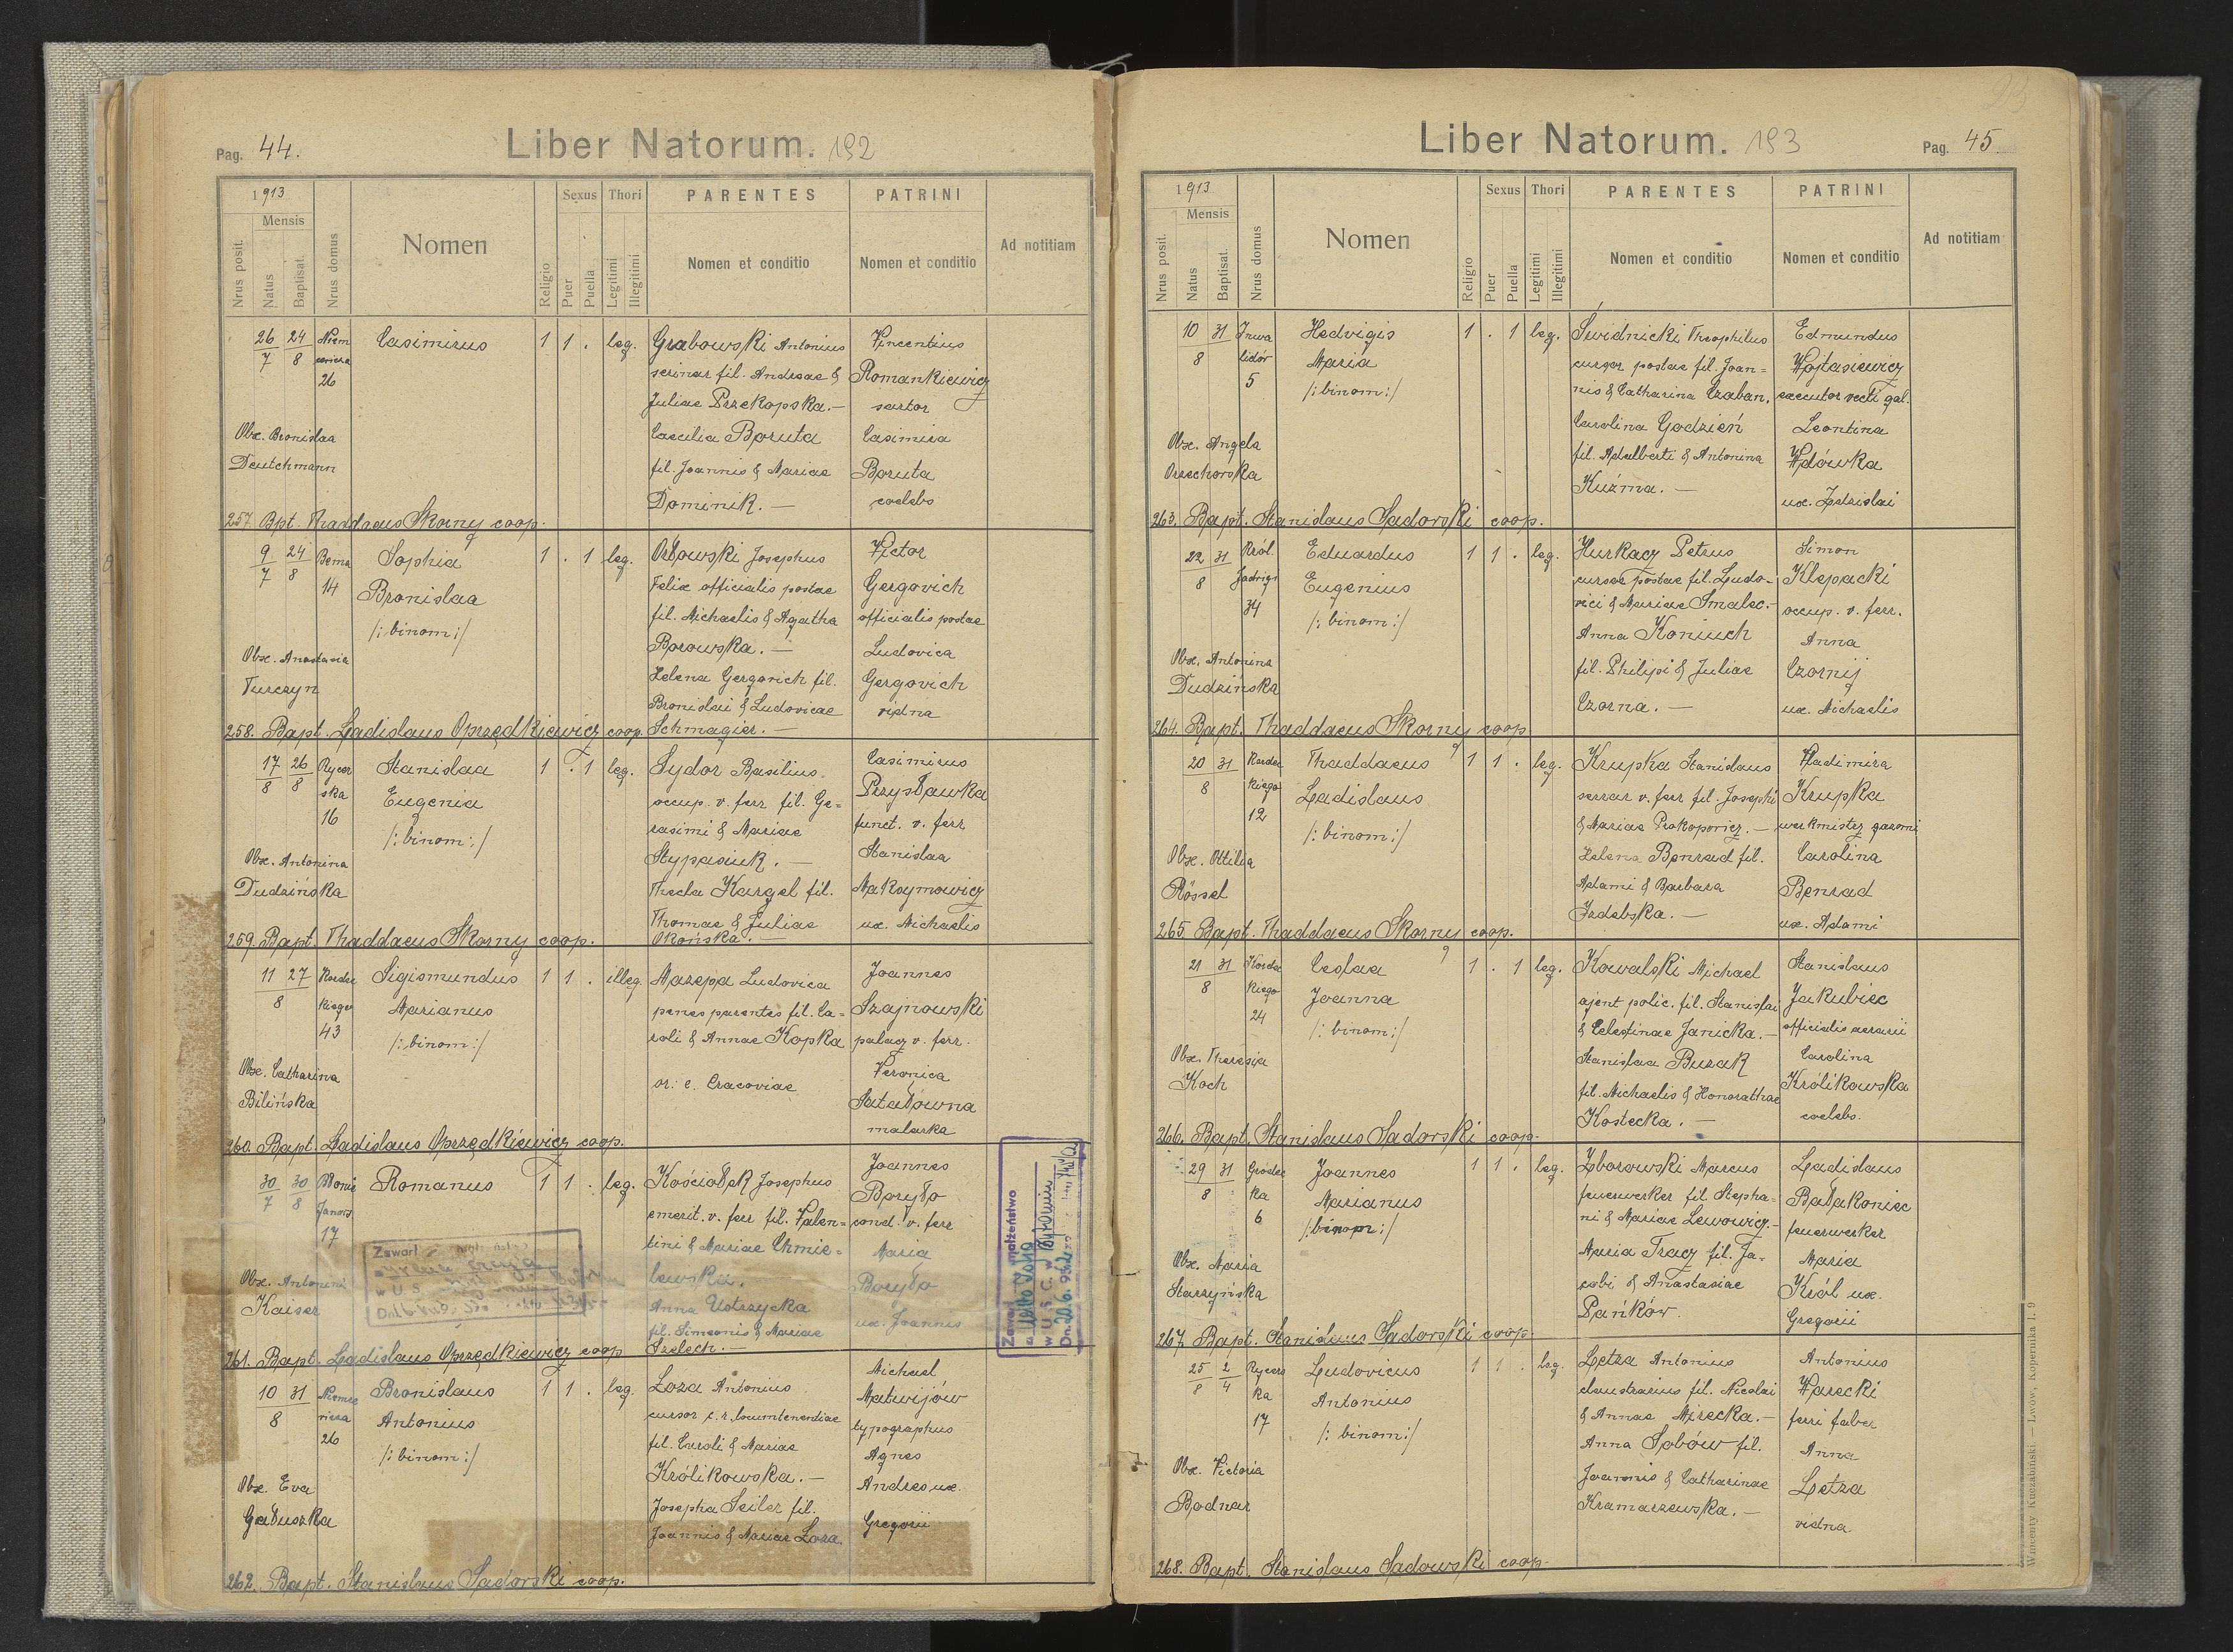 Pag. 44.
Liber Natorum. 192
1913
Mensis
Nrus posit.
Natus
Baptisat.
Nrus domus
Nomen
Religio
Sexus
Puer
Puella
Thori
Legitimi
Illegitimi
PARENTES
Nomen et conditio
PATRINI
Nomen et conditio
Ad notitiam
26 24 Niem Casimirus 1 1 . leg. Grabowski Antonius Vincentius
7 8 cewicza serinar fil. Andreae & Romankiewicz
26 Juliae Przekopska.— sartor
Obx. Bronislaa Caecilia Boruta Casimira
Deutchmann fil. Joannis & Mariae Boruta
Dominik.— coelebs
257. Bpt. Thaddaeus Skorny coop.
9 24 Bema Sophia 1 . 1 leg. Orłowski Josephus Victor
7 8 14 Bronislaa Felix officialis postae Gergovich
/: binom :/ fil. Michaelis & Agatha officialis postae
Borowska.— Ludovica
Obx. Anastasia Helena Gergovich fil. Gergovich
Turczyn Bronislai & Ludovicae vidna
258. Bapt. Ladislaus Oprzędkiewicz coop. Schmagier.—
17 26 Rycer Stanislaa 1 . 1 leg. Sydor Basilius Casimirus
8 8 ska Eugenia occup. v. ferr fil. Ge= Przysławka
16 /: binom :/ rasimi & Mariae funct. v. ferr
Obx. Antonina Stypasiuk.— Stanislaa
Dudzińska Thecla Kargel fil. Maksymowicz
Thomae & Juliae ux. Michaelis
259. Bapt. Thaddaeus Skorny coop. Okońska.—
11 27 Kordec Sigismundus 1 1 . illeg. Mazepa Ludovica Joannes
8 kiego Marianus penes parentes fil. Ca= Szajnowski
43 /: binom :/ roli & Annae Kopka palacz v. ferr.
Obx. Catharina or: e. Cracoviae Veronica
Bilińska Satałowna
malarka
260. Bapt. Ladislaus Oprzędkiewicz coop.
30 30 Błonie Romanus 1 1 . leg. Kościołek Josephus Joannes
7 8 Janows. emerit. v. ferr fil. Valen= Boryło
17 tini & Mariae Chmie= cond. v. ferr
lewska. Maria
Obx. Antonini Anna Ustrzycka Boryło
Kaiser fil. Simeonis & Mariae ux. Joannis
Zawarł
w U S
Zawarł małżeństwo
w U. S. C. w
Dn. 20.6.
261. Bapt. Ladislaus Oprzędkiewicz coop Szelech.—
10 31 Niemce Bronislaus 1 1 . leg. Łoza Antonius Michael
8 wicza Antonius cursor c. r. locumtenentiae Matwijów
26 /: binom :/ fil. Caroli & Mariae typographus
Królikowska.— Agnes
Obx. Eva Josepha Seiler fil. Andres ux.
Gałuszka Joannis & Mariae Łoza. Gregorii
262. Bapt. Stanislaus Sadowski coop.
Liber Natorum. 193
Pag. 45
1913
Mensis
Nrus posit.
Natus
Baptisat.
Nrus domus
Nomen
Religio
Sexus
Puer
Puella
Thori
Legitimi
Illegitimi
PARENTES
Nomen et conditio
PATRINI
Nomen et conditio
Ad notitiam
10 31 Inwa Hedvigis 1 . 1 leg. Świdnicki Theophilus Edmundus
8 lidów Maria cursor postae fil. Joan= Wojtasiewicz
5 /: binom :/ nis & Catharina Czaban. executor vecti gal.
Obx. Angela Carolina Godzień Leontina
Orzechowska fil. Adalberti & Antonina Wdówka
Kuźma.— ux. Zdzislai
263. Bapt. Stanislaus Sadowski coop.
22 31 Król. Eduardus 1 1 . leg. Hurkacz Petrus Simon
8 Jadwigi Eugenius cursor postae fil. Ludo= Klepacki
34 /: binom :/ vici & Mariae Smalec.— occup. v. ferr.
Anna Koniuch Anna
Obx. Antonina fil. Philipi & Juliae Czornij
Dudzińska Czorna.— ux. Michaelis
264. Bapt. Thaddaeus Skorny coop
20 31 Kordec Thaddaeus 1 1 . leg. Krupka Stanislaus Vladimira
8 kiego Ladislaus serrar v. ferr fil. Josephi Krupka
12 /: binom :/ & Mariae Prokopowicz.— werkmistrz gazowni
Obx. Ottilia Helena Benrad fil. Carolina
Rössel Adami & Barbara Benrad
Zadebska.— ux. Adami
265. Bapt. Thaddaeus Skorny coop.
21 31 Kordec Ceslaa 1 . 1 leg. Kowalski Michael Stanislaus
8 kiego Joanna ajent polic. fil. Stanislai Jakubiec
24 /: binom :/ & Celestinae Janicka.— officialis aerarii
Obx. Theresia Stanislaa Buzak Carolina
Koch fil. Michaelis & Honorathae Królikowska
Kostecka.— coelebs.
266. Bapt. Stanislaus Sadowski coop.
29 31 Grodec Joannes 1 1 . leg. Zborowski Marcus Ladislaus
8 ka Marianus feuerwerker fil. Stepha= Bałakoniec
6 /: binom :/ ni & Mariae Lewowicz.— feuerwerker
Obx. Maria Maria Tracz fil. Ja= Maria
Starzyńska cobi & Anastasiae Król ux.
Pańków. Gregorii
267. Bapt. Stanislaus Sadowski coop.
25 2 Rycers Ludovicus 1 1 . leg. Letza Antonius Antonius
8 4 ka Antonius claustrarius fil. Nicolai Warecki
17 /: binom :/ & Annae Mirecka.— ferri faber
Obx. Victoria Anna Sobów fil. Anna
Bodnar Joannis & Catharinae Letza
Kramarzewska.— vidna
268. Bapt. Stanislaus Sadowski coop.
Wincenty Kuczabiński. — Lwów, Kopernika l. 9